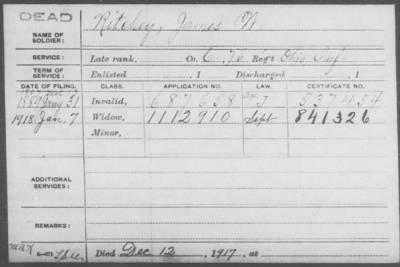 DEAD
NAME OF SOLDIER: Ritchey, James W
SERVICE: Late rank, Co. E, 70 Reg't Ohio Inf
TERM OF SERVICE: Enlisted , 1 Discharged , 1
DATE OF FILING. CLASS. APPLICATION NO. LAW. CERTIFICATE NO.
1889 31 Invalid, 687658 J 537454
1918 Jan. 7 Widow, 1112910 Sept 841326
Minor,
ADDITIONAL SERVICES:
REMARKS:
Died Dec 12, 1917, at